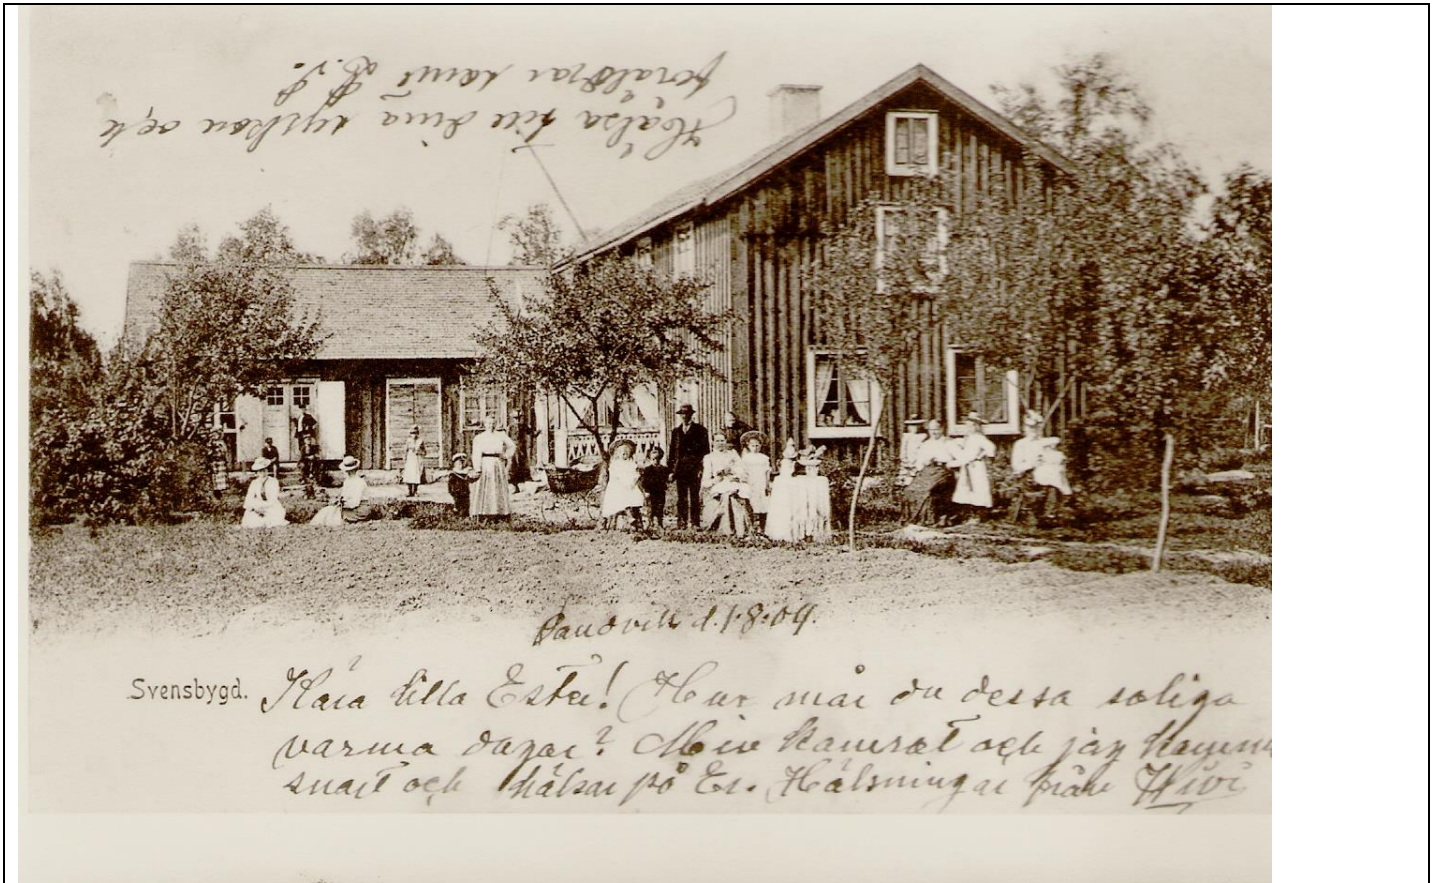 Hälsa till dina syskon och
föräldrar samt D. S.
Sandvik d. 1.8.04.
Svensbygd.
Kära lilla Ester! Hur mår du dessa soliga
varma dagar? Min kamrat och jag komma
snart och hälsar på Er. Hälsningar från